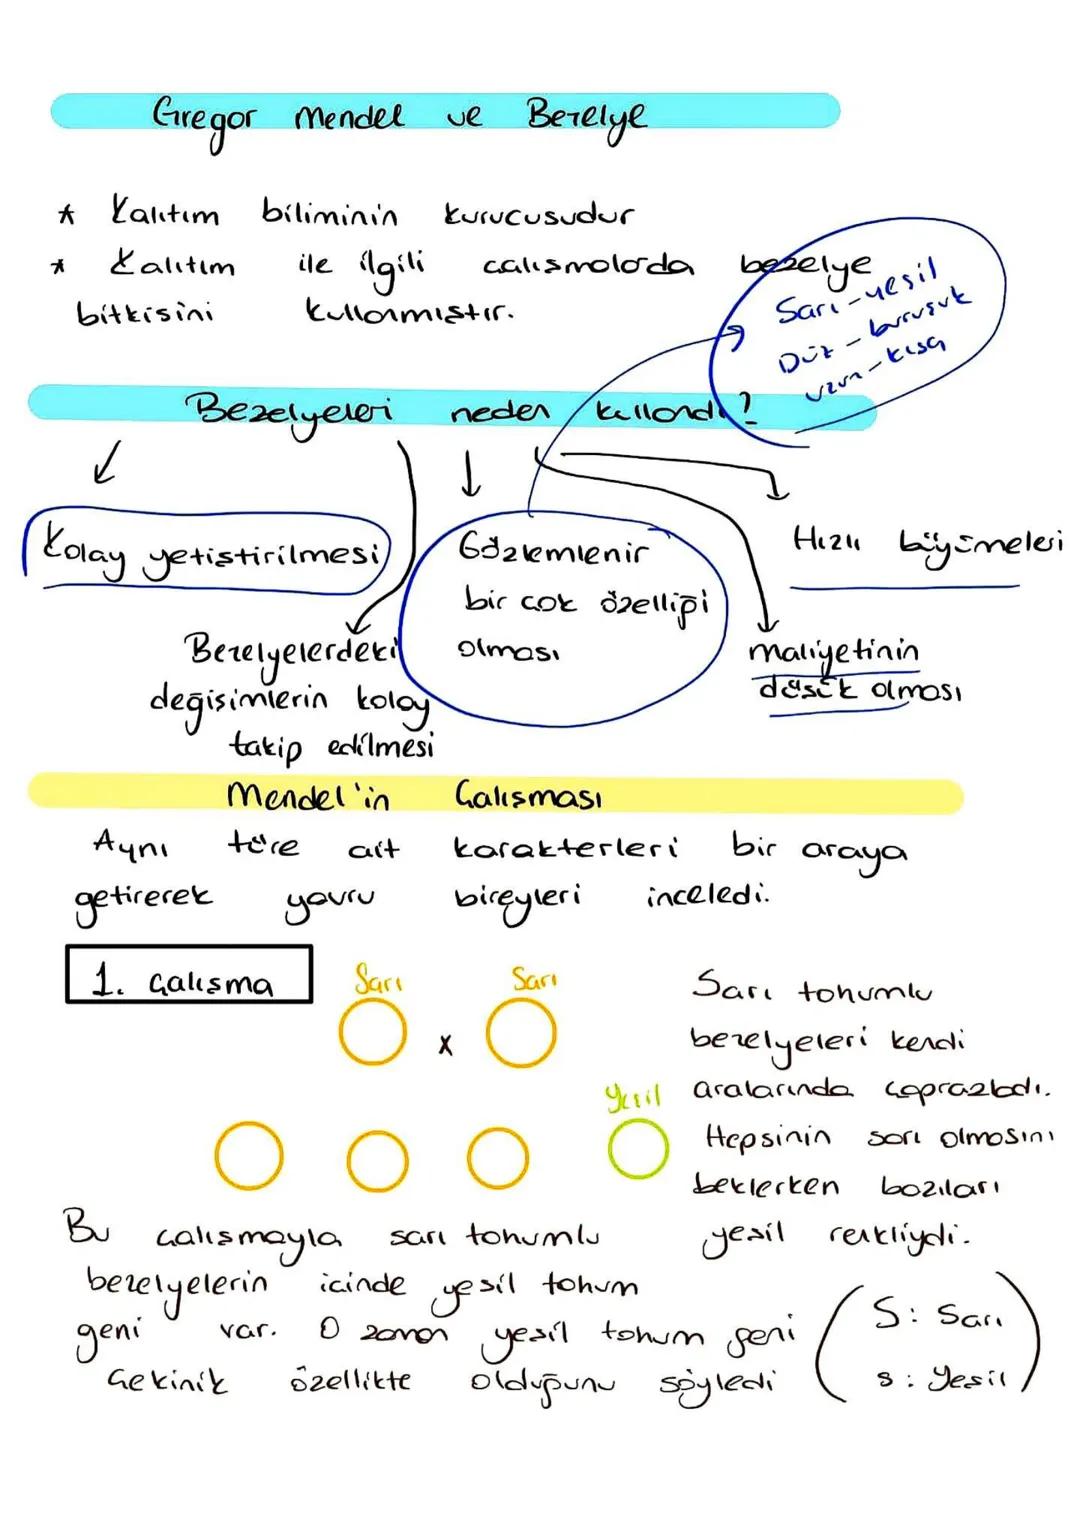 Gregor Mendel ve Bezelye
* Kalıtım biliminin kurucusudur
* Kalıtım ile ilgili calışmalarda bezelye
bitkisini kullanmıştır.
Sarı-yeşil
Düz - buruşuk
uzun - kısa
Bezelyeleri neden kullandı?
Kolay yetiştirilmesi
Gözlemlenir
bir cok özelliği
olması
Hızlı büyümeleri
Bezelyelerdeki
değişimlerin kolay
takip edilmesi
maliyetinin
düşük olması
Mendel'in Çalışması
Aynı türe ait karakterleri bir araya
getirerek yavru bireyleri inceledi.
1. çalışma
Sarı Sarı
x
Yeşil
Sarı tohumlu
bezelyeleri kendi
aralarında çaprazladı.
Hepsinin sarı olmasını
beklerken bazıları
yeşil renkliydi.
Bu çalışmayla sarı tohumlu
bezelyelerin icinde yeşil tohum
geni var. O zaman yeşil tohum geni
Çekinik özellikte olduğunu söyledi
S: Sarı
s: Yeşil